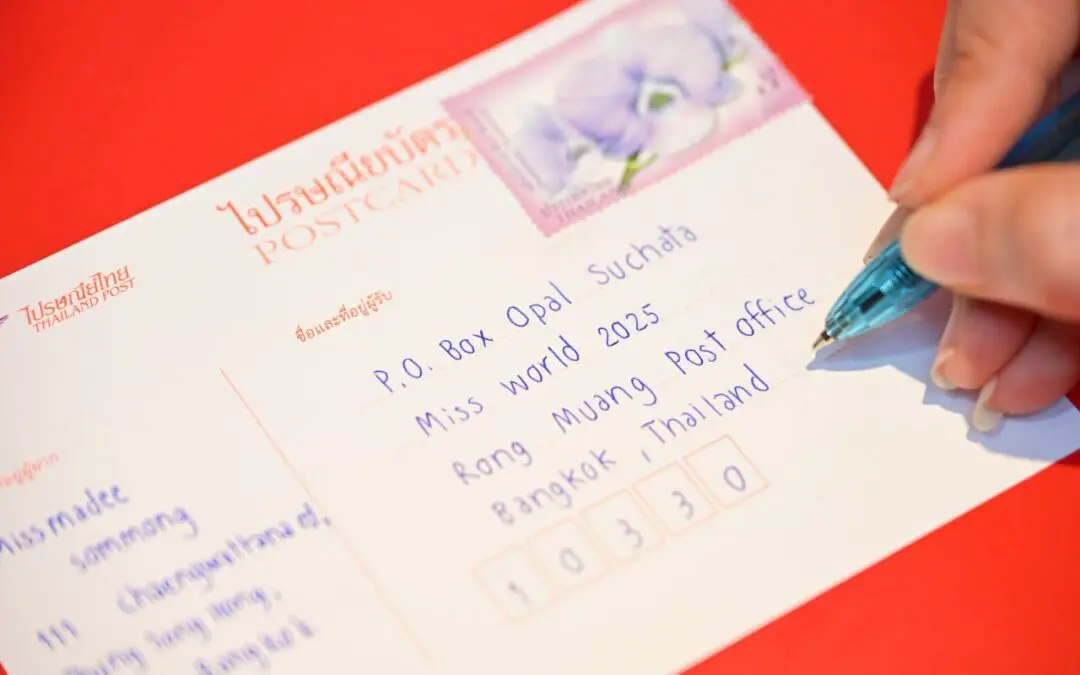 ไปรษณียบัตร
POSTCARD
ไปรษณีย์ไทย
THAILAND POST
ชื่อและที่อยู่ผู้รับ
P.O. Box Opal Suchata
Miss world 2025
Rong Muang Post office
Bangkok, Thailand
10330
Miss madee
sommang
111 chaengwattana rd.
Thung Song Hong,
Bangkok
THAILAND